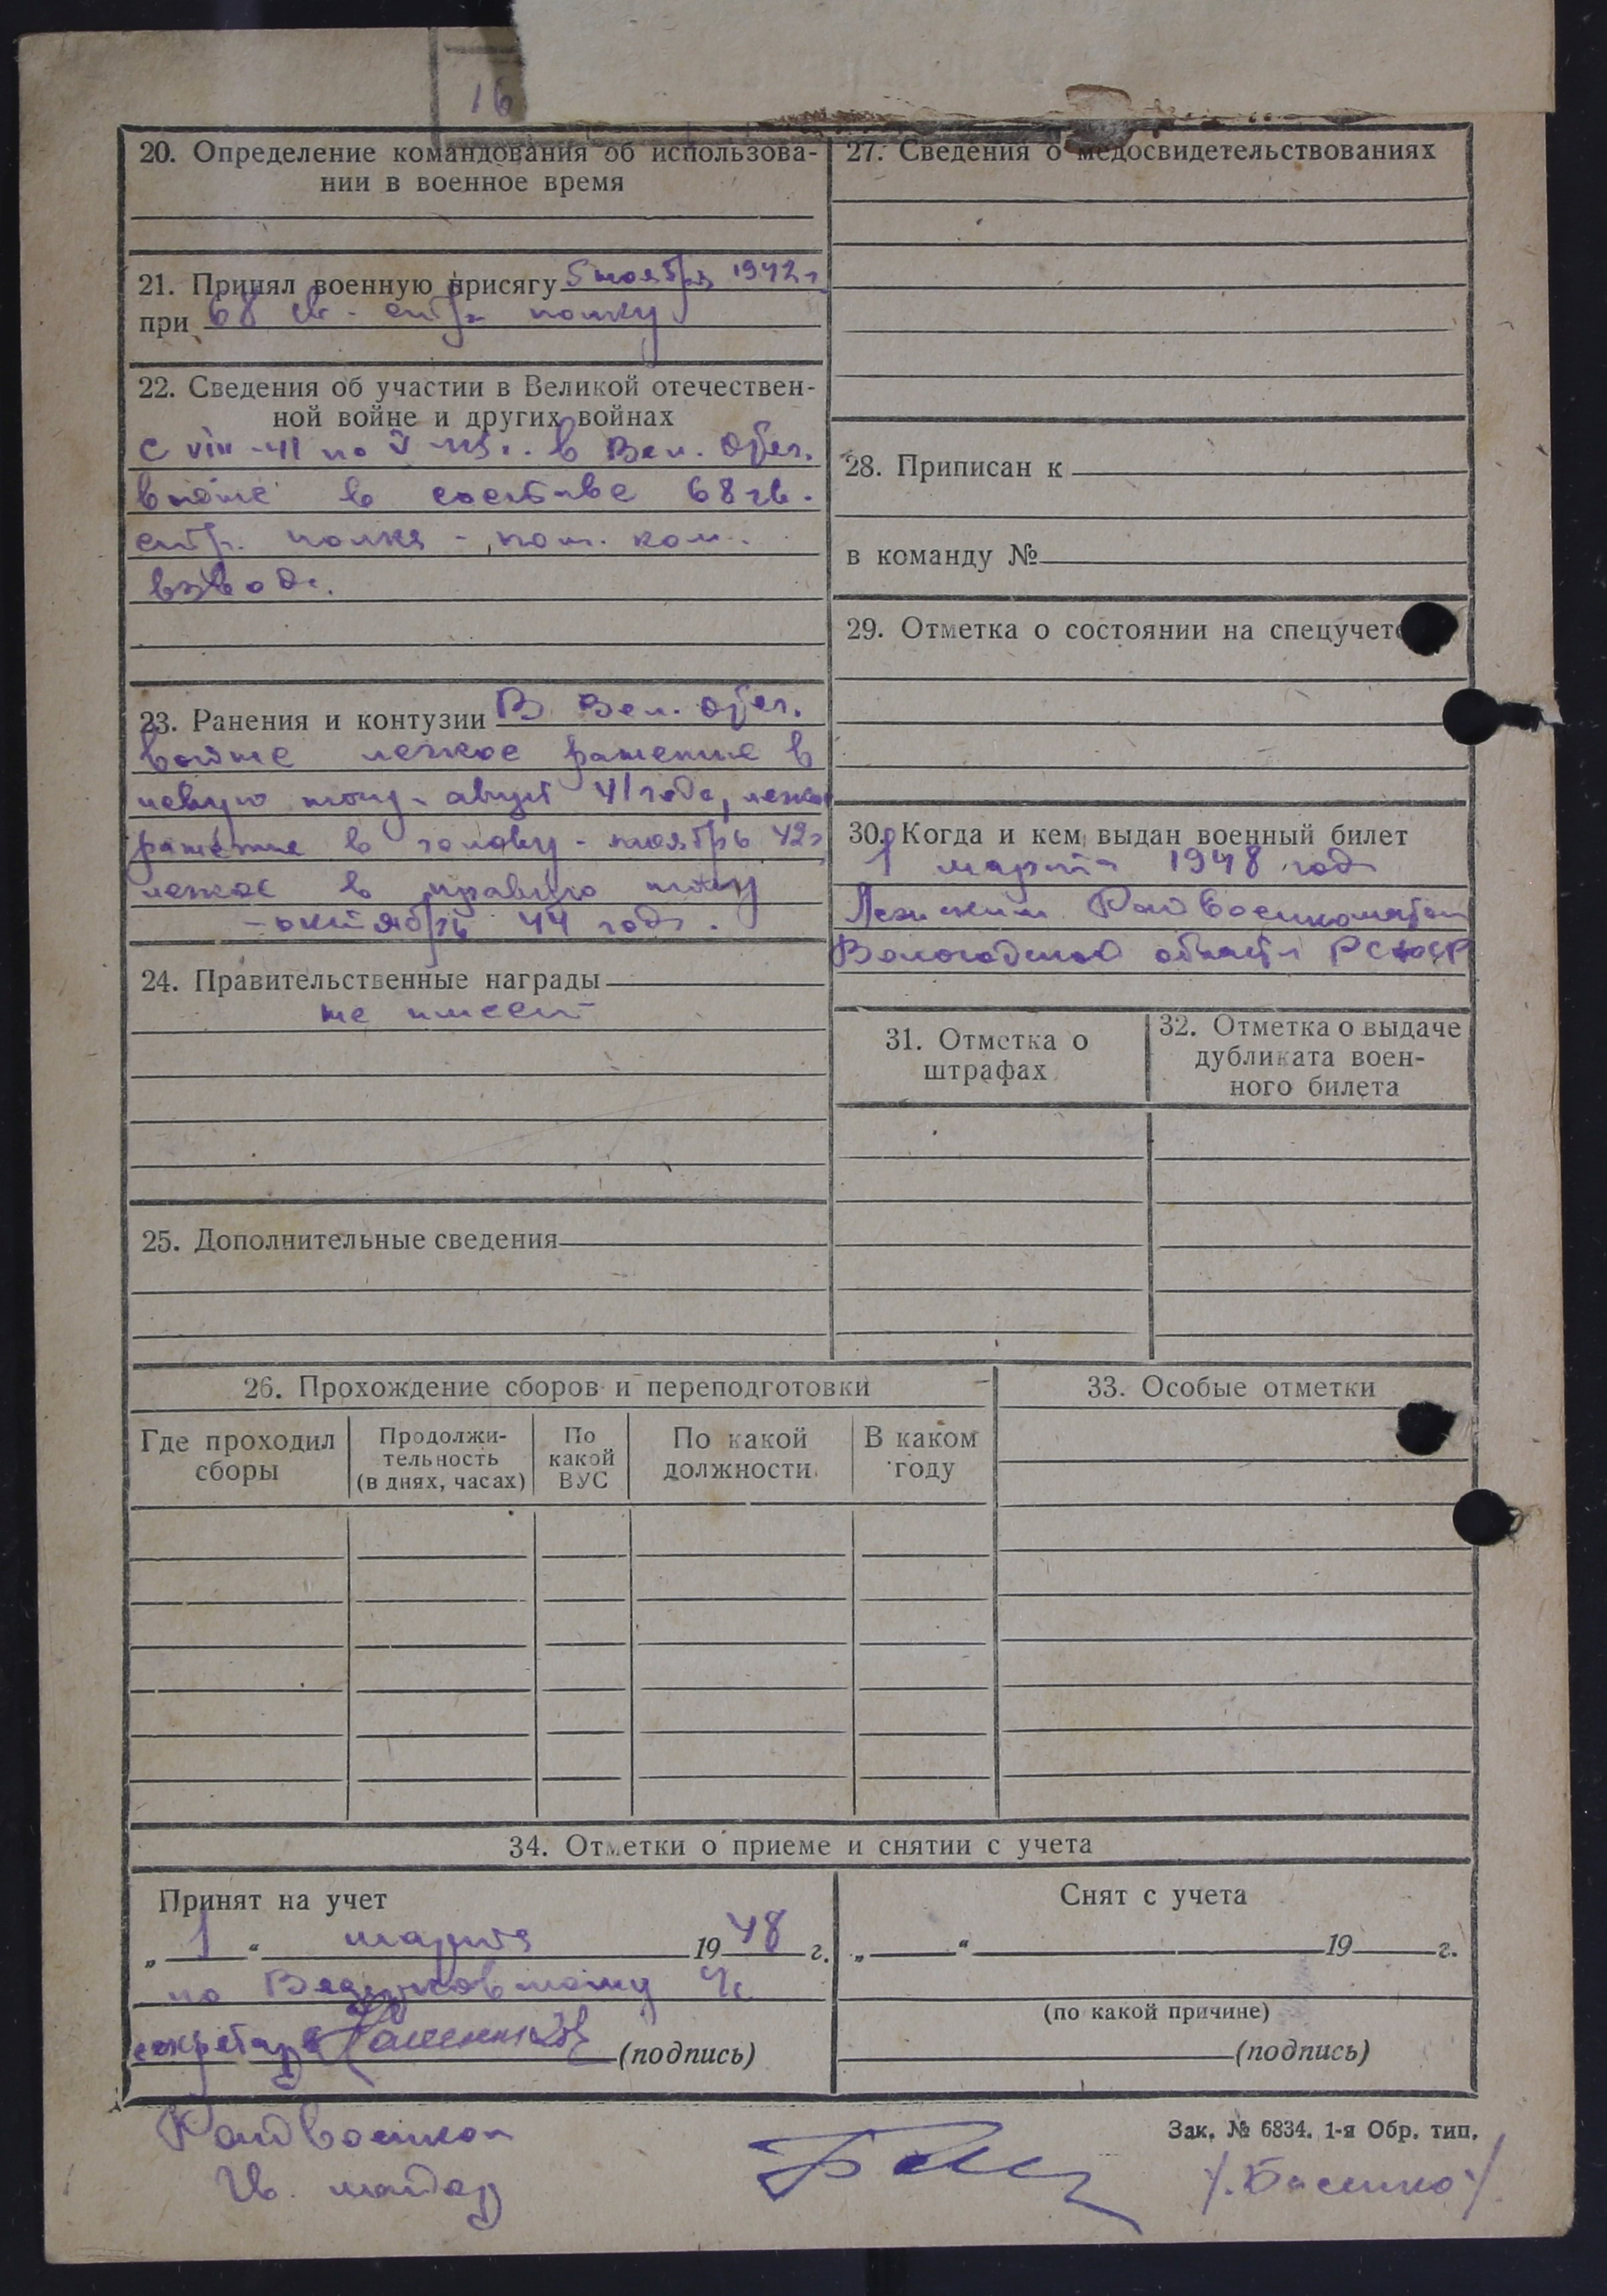 16
20. Определение командования об использова-
нии в военное время
21. Принял военную присягу 5 ноября 1942 г
при 68 гв. стр. полку
22. Сведения об участии в Великой отечествен-
ной войне и других войнах
С VIII-41 по V-45 г. в Вел. Отеч.
войне в составе 68 гв.
стр. полка - пом. ком.
взвода.
23. Ранения и контузии В Вел. Отеч.
войне легкое ранение в
левую ногу - август 41 года, легкое
ранение в голову - ноябрь 42 г
легкое в правую ногу
- октябрь 44 года.
24. Правительственные награды
не имеет
25. Дополнительные сведения
27. Сведения о медосвидетельствованиях
28. Приписан к
в команду №
29. Отметка о состоянии на спецучете
30. Когда и кем выдан военный билет
1 марта 1948 года
Лежским Райвоенкоматом
Вологодской области РСФСР
31. Отметка о
штрафах
32. Отметка о выдаче
дубликата воен-
ного билета
26. Прохождение сборов и переподготовки
Где проходил
сборы
Продолжи-
тельность
(в днях, часах)
По
какой
ВУС
По какой
должности
В каком
году
33. Особые отметки
34. Отметки о приеме и снятии с учета
Принят на учет
„ 1 “ марта 1948 г.
по
секретарь (подпись)
Снят с учета
„ “ 19 г.
(по какой причине)
(подпись)
Зак. № 6834. 1-я Обр. тип.
Райвоенком
Гв. майор